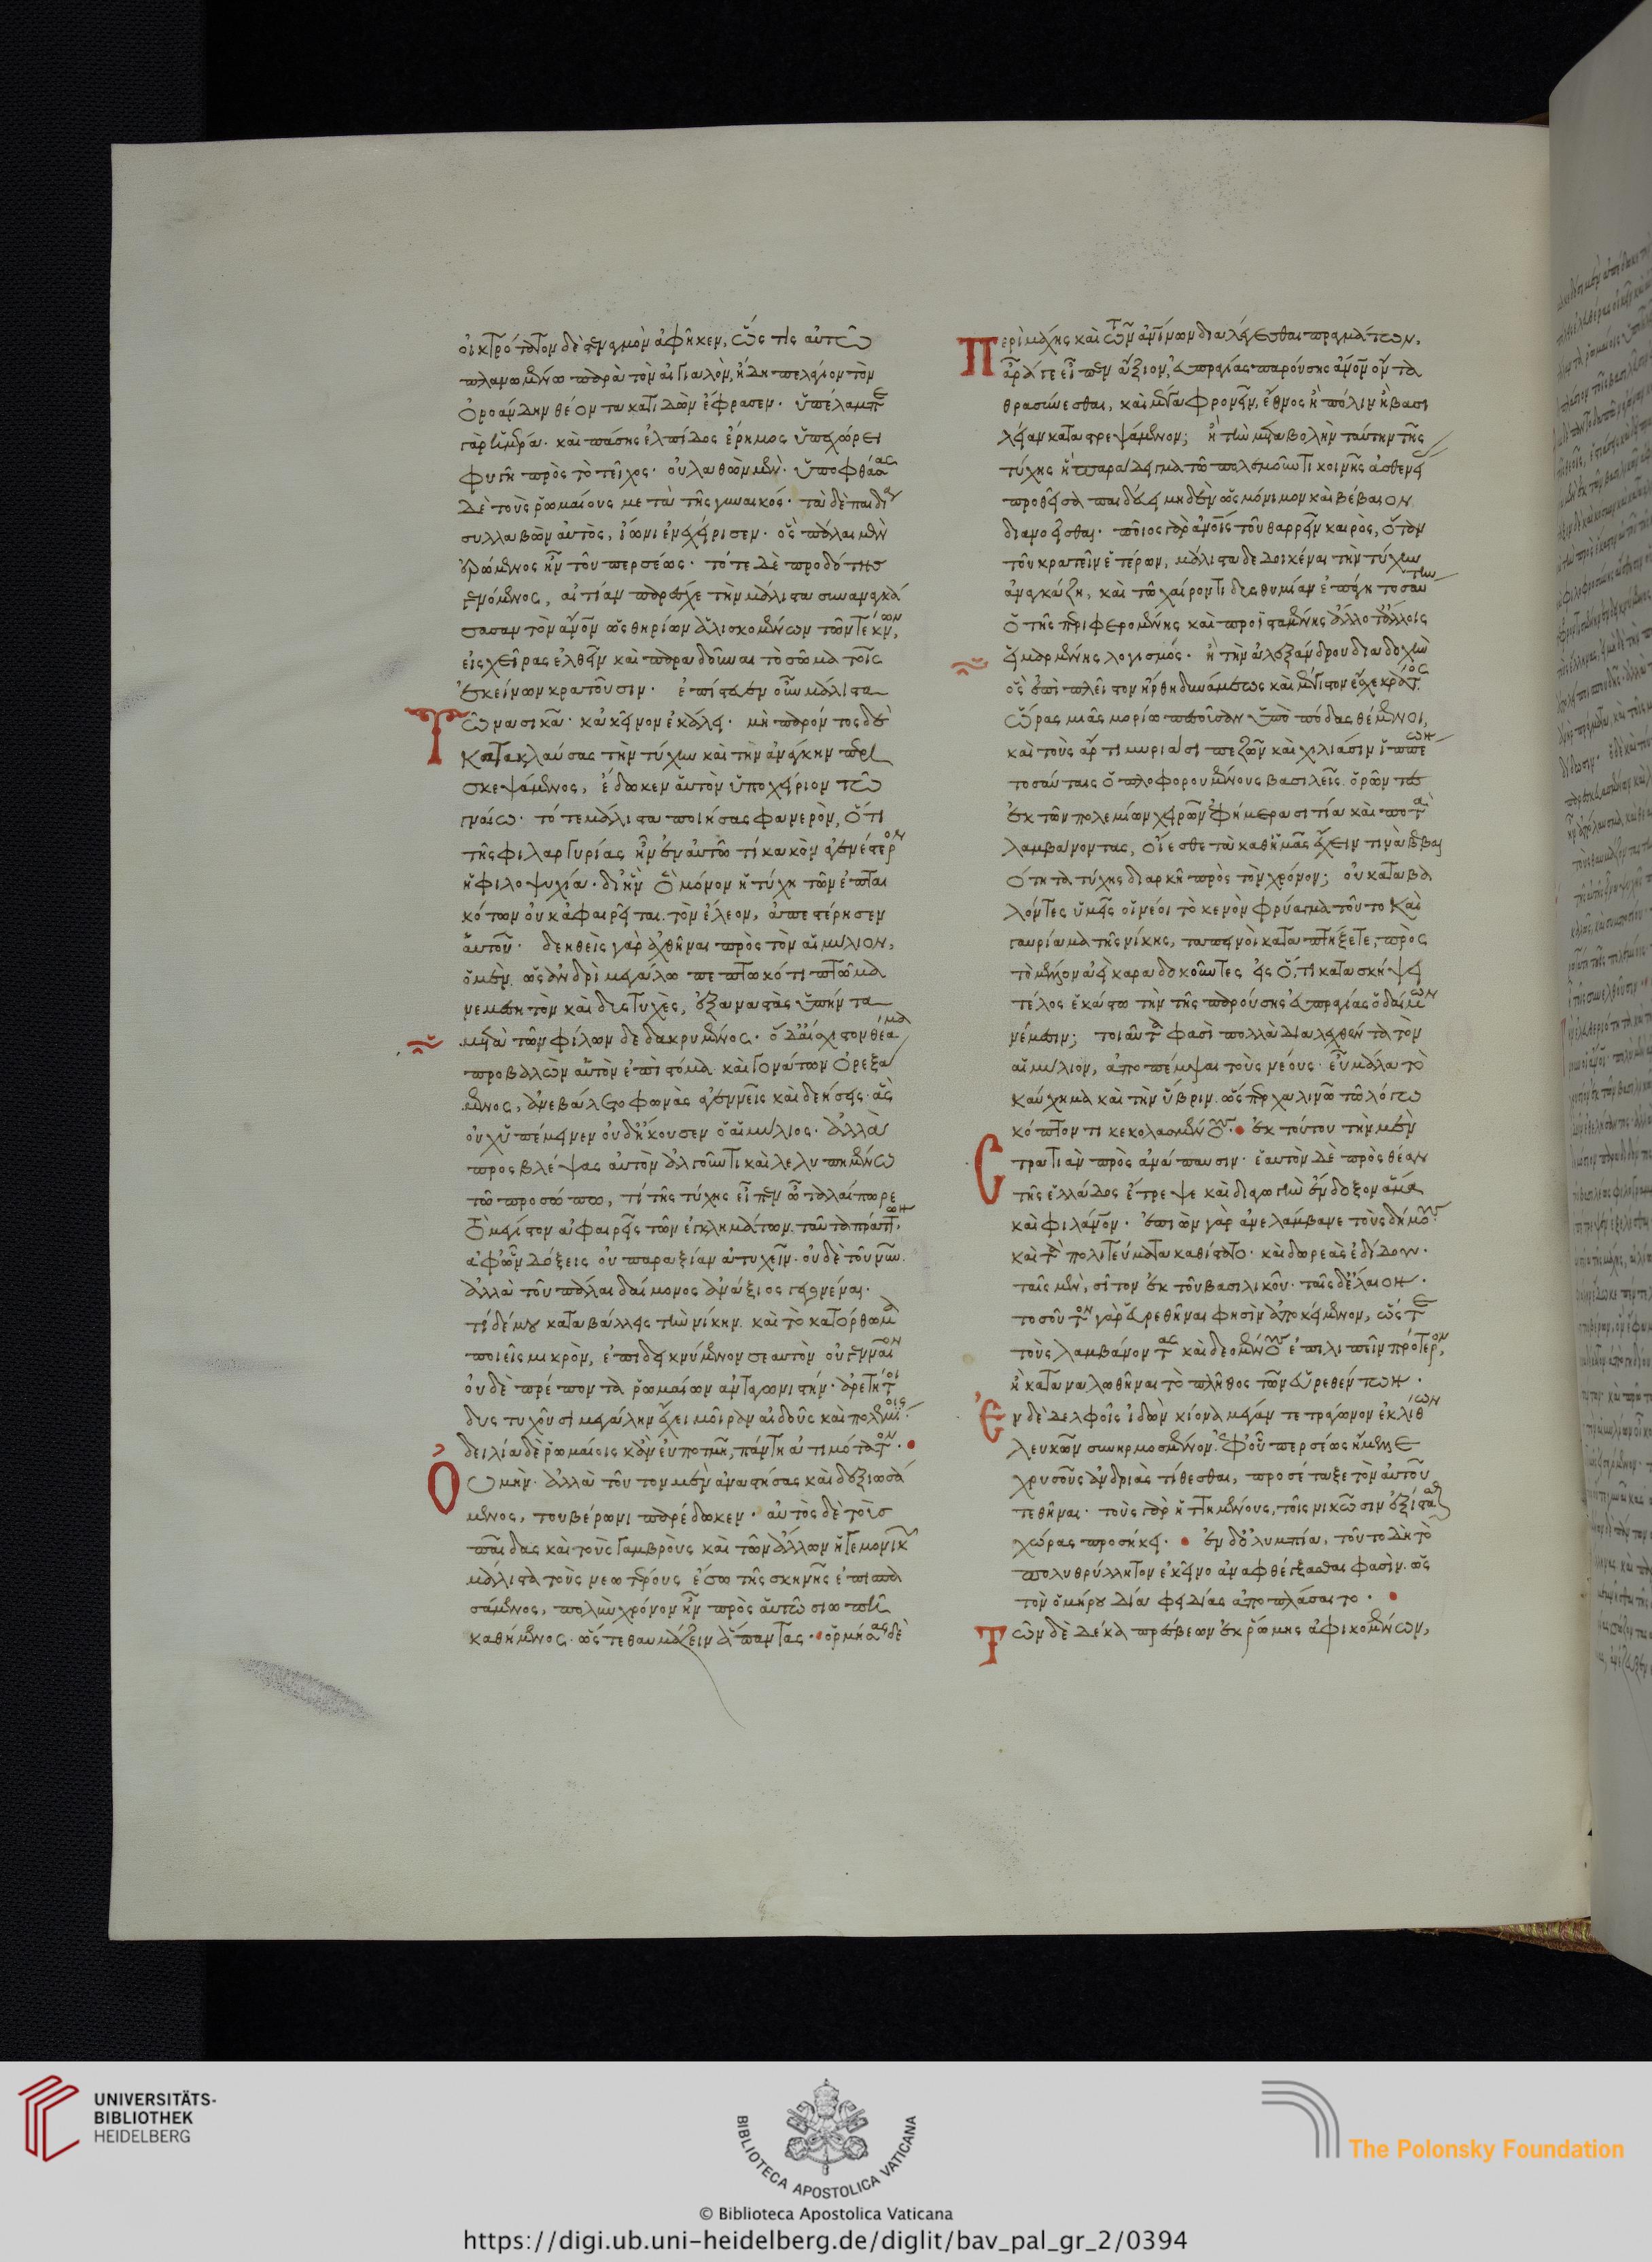 οἰκτρότατον δὲ στεναγμὸν ἀφῆκεν, ὥς τις αὐτῷ
πλανωμένῳ παρὰ τὸν αἰγιαλὸν, ἤδη πελάγιον τὸν
Ὀροάνδην θέοντα κατιδὼν ἔφρασεν. ὑπέλαμπε
γὰρ ἡμέρα. καὶ πάσης ἐλπίδος ἔρημος ὑπεχώρει
φυγῇ πρὸς τὸ τεῖχος. οὐ λαθὼν μὲν. ὑποφθάσας
δὲ τοὺς ῥωμαίους μετὰ τῆς γυναικός. τὰ δὲ παιδία
συλλαβὼν αὐτὸς, ἴωνι ἐνεχείρισεν. ὃς πάλαι μὲν
ἐρώμενος ἦν τοῦ περσέως. τότε δὲ προδότης
γενόμενος, αἰτίαν παρέσχε τὴν μάλιστα συναναγκά
σασαν τὸν ἄνθρωπον ὡς θηρίων ἁλισκομένων τῶν τέκνων,
εἰς χεῖρας ἐλθεῖν καὶ παραδοῦναι τὸ σῶμα τοῖς
ἐκείνων κρατοῦσιν. ἐπίστευεν οὖν μάλιστα
Τῷ νασικᾷ. κἀκεῖνον ἐκάλει. μὴ παρόντος δὲ
κατακλαύσας τὴν τύχην καὶ τὴν ἀνάγκην περι
σκεψάμενος, ἔδωκεν αὑτὸν ὑποχείριον τῷ
γναίῳ. τότε μάλιστα ποιήσας φανερὸν, ὅτι
τῆς φιλαργυρίας ἦν ἐν αὐτῷ τι κακὸν ἀγεννέστερον
ἡ φιλοψυχία. δι' ἣν ὃ μόνον ἡ τύχη τῶν ἐπται
κότων οὐκ ἀφαιρεῖται τὸν ἔλεον, ἀπεστέρησεν
αὑτόν. δεηθεὶς γὰρ ἀχθῆναι πρὸς τὸν αἰμίλιον,
ὁ μὲν ὡς ἀνδρὶ μεγάλῳ πεπτωκότι πτῶμα
νεμεσητὸν καὶ δυστυχὲς, ἐξαναστὰς ὑπήντα
μετὰ τῶν φίλων δεδακρυμένος. ὁ δ' αἴσχιστον θέαμα
προβαλὼν αὑτὸν ἐπὶ στόμα καὶ γονάτων ὀρεξά
μενος, ἀνεβάλετο φωνὰς ἀγεννεῖς καὶ δεήσεις. ἃς
οὐχ ὑπέμεινεν οὐδ' ἤκουσεν ὁ αἰμίλιος. ἀλλὰ
προσβλέψας αὐτὸν ἀλγοῦντι καὶ λελυπημένῳ
τῷ προσώπῳ, τί τῆς τύχης εἶπεν ὦ ταλαίπωρε
ὃ μέγιστον ἀφαιρεῖς τῶν ἐγκλημάτων. ταῦτα πράττων,
ἀφ' ὧν δόξεις οὐ παραξίαν ἀτυχεῖν. οὐδὲ τοῦ νῦν.
ἀλλὰ τοῦ πάλαι δαίμονος ἀνάξιος γεγονέναι.
τί δέ μου καταβάλλεις τὴν νίκην. καὶ τὸ κατόρθωμα
ποιεῖς μικρὸν, ἐπιδεικνύμενον σεαυτὸν οὐ γενναῖον
οὐδὲ πρέποντα ῥωμαίων ἀνταγωνιστήν. ἀρετή τοι
δυστυχοῦσι μεγάλην ἔχει μοῖραν αἰδοῦς καὶ πολεμίοις.
δειλία δὲ ῥωμαίοις κἂν εὐποτμῇ, πάντη ἀτιμότατον.
Οὐ μὴν ἀλλὰ τοῦτον μὲν ἀναστήσας καὶ δεξιωσά
μενος, τουβέρωνι παρέδωκεν. αὐτὸς δὲ τοὺς
παῖδας καὶ τοὺς γαμβροὺς καὶ τῶν ἄλλων ἡγεμονικῶν
μάλιστα τοὺς νεωτέρους ἔσω τῆς σκηνῆς ἐπισπα
σάμενος, πολὺν χρόνον ἦν πρὸς αὑτῷ σιωπῇ
καθήμενος. ὥστε θαυμάζειν ἅπαντας. ὁρμήσας δὲ
Περὶ τύχης καὶ τῶν ἀνθρωπίνων διαλέγεσθαι πραγμάτων,
ἆρά γε εἶπεν ἄξιον, εὐπραγίας παρούσης ἄνθρωπον ὄντα
θρασύνεσθαι, καὶ μέγα φρονεῖν, ἔθνος ἢ πόλιν ἢ βασι
λείαν καταστρεψάμενον; ἢ τὴν μεταβολὴν ταύτην τῆς
τύχης ἣ παράδειγμα τῷ πολεμοῦντι κοινῆς ἀσθενείας
προθεῖσα παιδεύει μηδὲν ὡς μόνιμον καὶ βέβαιον
διανοεῖσθαι. ποῖος γὰρ ἀνθρώποις τοῦ θαρρεῖν καιρὸς, ὅταν
τὸ κρατεῖν ἑτέρων, μάλιστα δεδοικέναι τὴν τύχην
ἀναγκάζῃ, καὶ τῷ χαίροντι δυσθυμίαν ἐπάγῃ τοσαύτην
ὁ τῆς περιφερομένης καὶ προϊσταμένης ἄλλοτ' ἄλλοις
εἱμαρμένης λογισμός. ἢ τὴν ἀλεξάνδρου διαδοχὴν
ὃς ἐπὶ πλεῖστον ἤρθη δυνάμεως καὶ μέγιστον ἔσχε κράτος
ὥρας μιᾶς μορίῳ πεσοῦσαν ὑπὸ πόδας θέμενοι,
καὶ τοὺς ἄρτι μυριάσι πεζῶν καὶ χιλιάσιν ἱππέων
τοσαύταις ὁπλοφορουμένους βασιλεῖς. ὁρῶντες
ἐκ τῶν πολεμίων χειρῶν ἐφήμερα σιτία καὶ ποτὰ
λαμβάνοντας, οἴεσθε τὰ καθ' ἡμᾶς ἔχειν τινὰ βεβαι
ότητα τύχης διαρκῆ πρὸς τὸν χρόνον; οὐ καταβα
λόντες ὑμεῖς οἱ νέοι τὸ κενὸν φρύαγμα τοῦτο καὶ
γαυρίαμα τῆς νίκης, ταπεινοὶ καταπτήξετε, πρὸς
τὸ μέλλον ἀεὶ καραδοκοῦντες εἰς ὅ,τι κατασκήψει
τέλος ἑκάστῳ τὴν τῆς παρούσης εὐπραγίας ὁ δαίμων
νέμεσιν; τοιαῦτά φασὶ πολλὰ διαλεχθέντα τὸν
αἰμίλιον, ἀποπέμψαι τοὺς νέους. εὖ μάλα τὸ
καύχημα καὶ τὴν ὕβριν. ὥσπερ χαλινῷ τῷ λόγῳ
κόπτοντι κεκολασμένους. ἐκ τούτου τὴν μὲν
Στρατιὰν πρὸς ἀνάπαυσιν. ἑαυτὸν δὲ πρὸς θέαν
τῆς ἑλλάδος ἔτρεψε καὶ διαγωγὴν ἔνδοξον ἅμα
καὶ φιλάνθρωπον. ἐπιὼν γὰρ ἀνελάμβανε τοὺς δήμους
καὶ τὰ πολιτεύματα καθίστατο. καὶ δωρεὰς ἐδίδου.
ταῖς μὲν, σῖτον ἐκ τοῦ βασιλικοῦ. ταῖς δ' ἔλαιον.
τοσοῦτον γὰρ εὑρεθῆναι φησὶν ἀποκείμενον, ὥστε
τοὺς λαμβάνοντας καὶ δεομένους ἐπιλιπεῖν πρότερον,
ἢ καταναλωθῆναι τὸ πλῆθος τῶν εὑρεθέντων.
Ἐν δὲ δελφοῖς ἰδὼν κίονα μέγαν τετράγωνον ἐκ λίθων
λευκῶν συνηρμοσμένον. ἐφ' οὗ περσέως ἤμελλε
χρυσοῦς ἀνδριὰς τίθεσθαι, προσέταξε τὸν αὑτοῦ
τεθῆναι. τοὺς γὰρ ἡττημένους, τοῖς νικῶσιν ἐξίστασθαι
χώρας προσήκει. ἐν δ' ὀλυμπίᾳ, τοῦτο δὴ τὸ
πολυθρύλλητον ἐκεῖνο ἀναφθέγξασθαι φασὶν. ὡς
τὸν ὁμήρου δία φειδίας ἀποπλάσαιτο.
Τῶν δὲ δέκα πρέσβεων ἐκ ῥώμης ἀφικομένων,
UNIVERSITÄTS-
BIBLIOTHEK
HEIDELBERG
BIBLIOTECA APOSTOLICA VATICANA
The Polonsky Foundation
© Biblioteca Apostolica Vaticana
https://digi.ub.uni-heidelberg.de/diglit/bav_pal_gr_2/0394